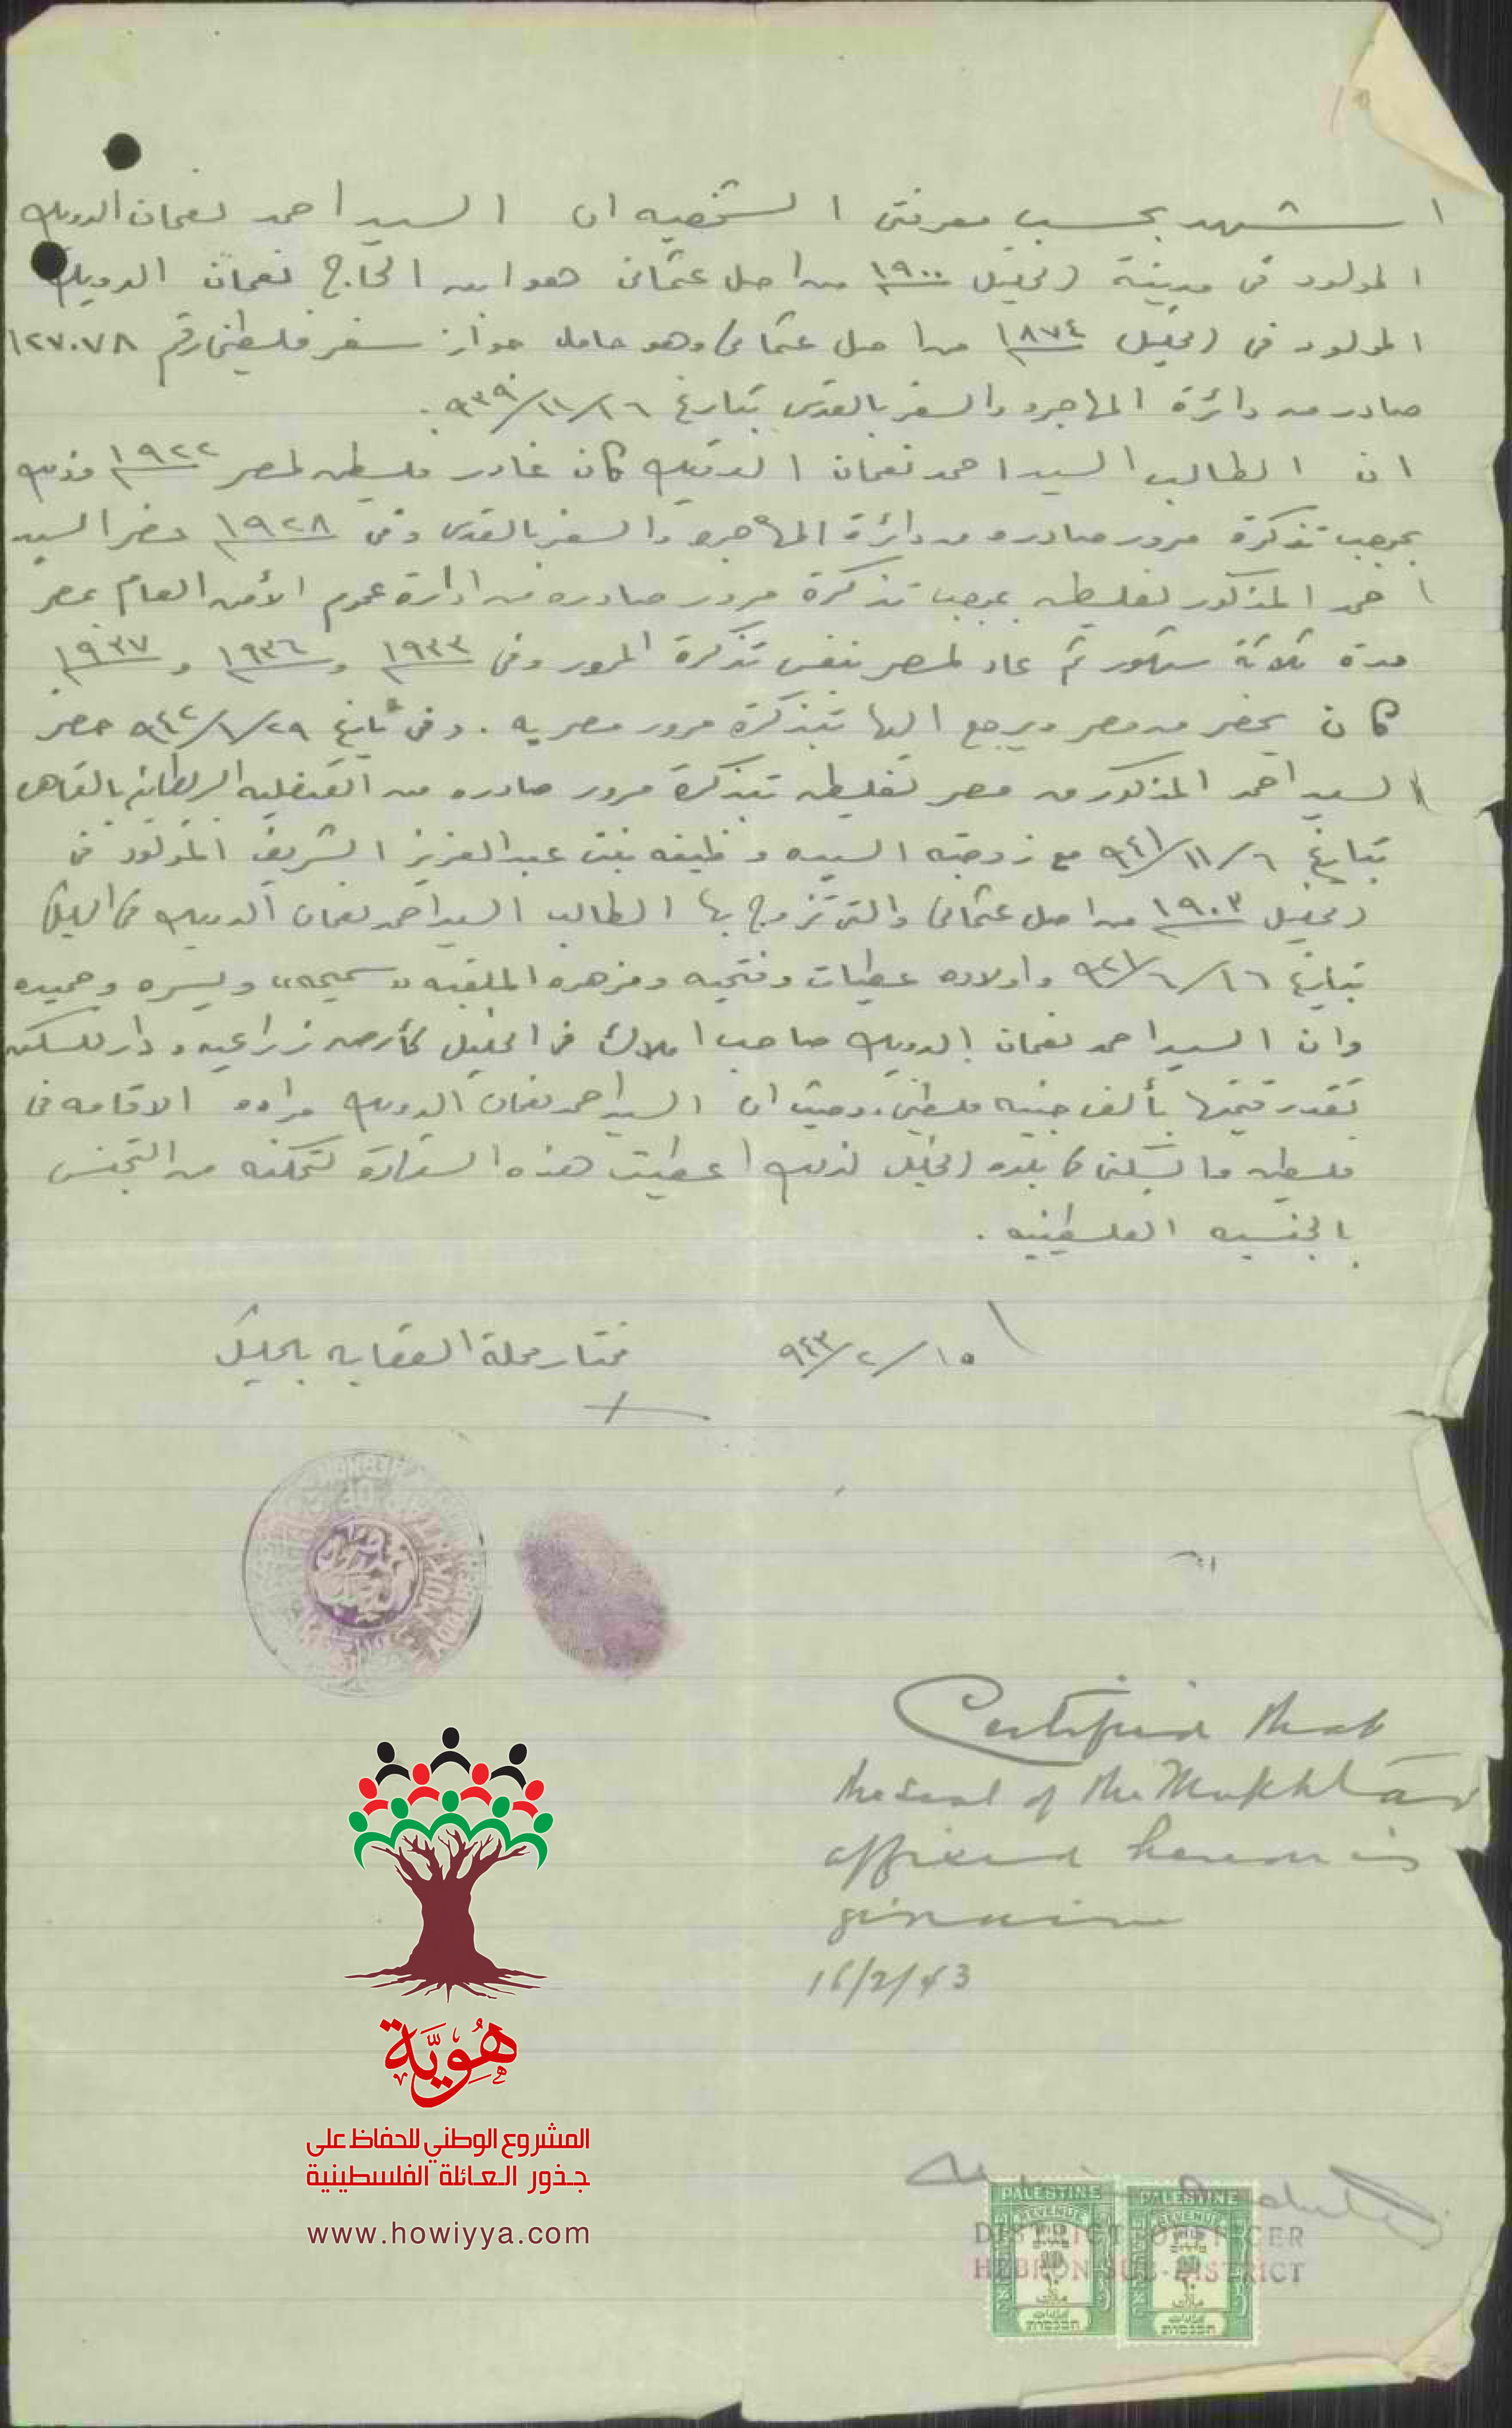 اشهد بحسب معرفتي الشخصيه ان السيد احمد نعمان الدويك
المولود في مدينة الخليل ١٩٠٠ من اصل عثماني هو ابن الحاج نعمان الدويك
المولود في الخليل ١٨٧٤ من اصل عثماني وهو حامل جواز سفر فلسطيني رقم ١٢٧٠٧٨
صادر من دائرة المهاجره والسفر بالقدس بتاريخ ١٦/١١/٩٣٩.
ان الطالب السيد احمد نعمان الدويك كان غادر فلسطين لمصر ١٩٢٢ وذلك
بموجب تذكرة مرور صادره من دائرة المهاجره والسفر بالقدس وفي ١٩٢٨ حضر السيد
احمد المذكور لفلسطين بموجب تذكرة مرور صادره من ادارة عموم الأمن العام بمصر
مدة ثلاثة شهور ثم عاد لمصر بنفس تذكرة المرور وفي ١٩٣٣ و ١٩٣٦ و ١٩٣٧
كان يحضر من مصر ويرجع اليها بتذكرة مرور مصريه. وفي تاريخ ٢٩/١/٩٤٢ حضر
السيد احمد المذكور من مصر لفلسطين بتذكرة مرور صادره من القنصليه البريطانيه بالقاهره
بتاريخ ٦/١١/٩٤١ مع زوجته السيده وظيفه بنت عبد العزيز الشريف المولود في
الخليل ١٩٠٣ من اصل عثماني والتي تزوج بها الطالب السيد احمد نعمان الدويك في الخليل
بتاريخ ١٦/٦/٩٢١ واولاده عطيات وفتحيه وزهره الملقبه "سميحه" ويسره وحميده
وان السيد احمد نعمان الدويك صاحب املاك في الخليل كأرض زراعيه ودار للسكن
تقدر قيمتها بألف جنيه فلسطيني وحيث ان السيد احمد نعمان الدويك مراده الاقامه في
فلسطين والسكن في بلده الخليل لذلك اعطيت هذه الشهادة لتمكنه من التجنس
بالجنسيه الفلسطينيه.
١٥/٢/٩٤٣ مختار محلة العقابه بالخليل
Certified that
the seal of the Mukhtar
affixed hereon is
genuine
16/2/43
هُوِيَّة
المشروع الوطني للحفاظ على
جذور العائلة الفلسطينية
www.howiyya.com
PALESTINE PALESTINE
REVENUE REVENUE
DISTRICT OFFICER
HEBRON SUB-DISTRICT